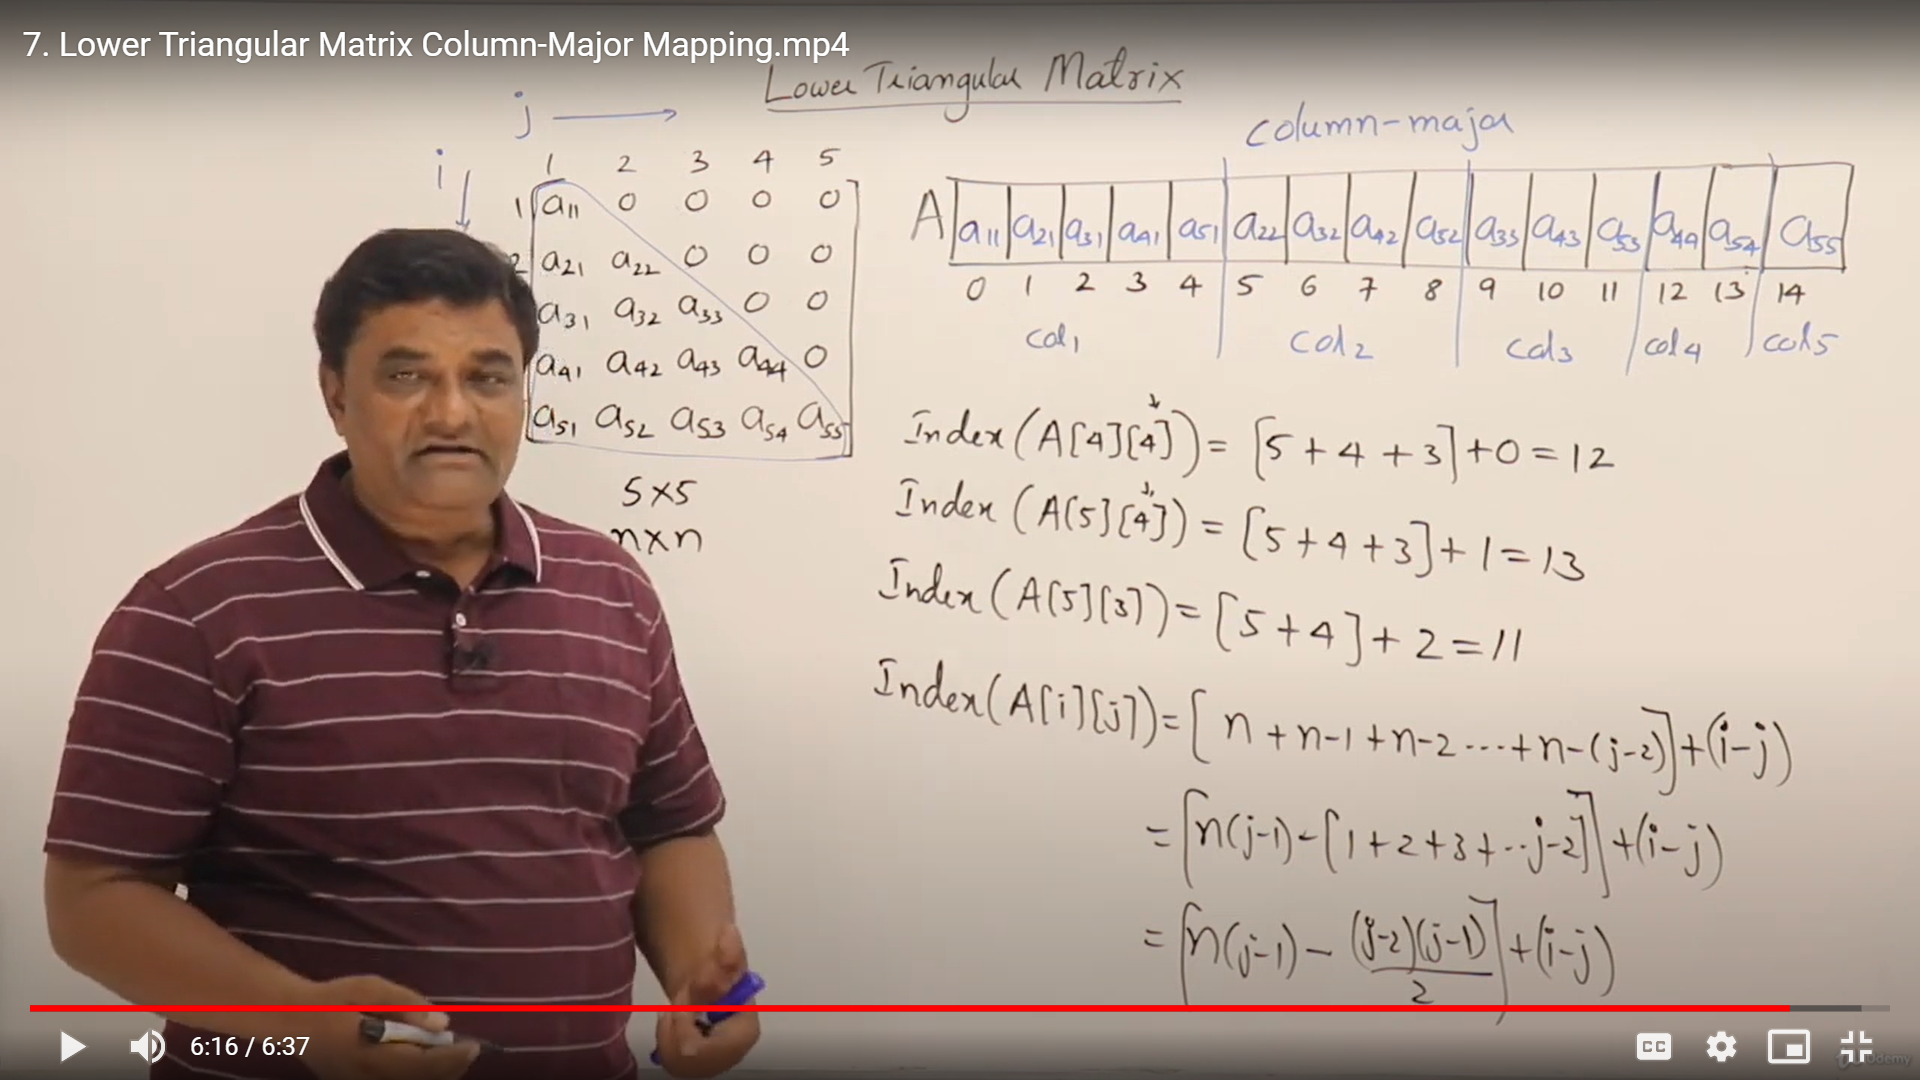 7. Lower Triangular Matrix Column-Major Mapping.mp4
Lower Triangular Matrix
j →
column-major
i ↓
1 2 3 4 5
1 a11 0 0 0 0
2 a21 a22 0 0 0
a31 a32 a33 0 0
a41 a42 a43 a44 0
a51 a52 a53 a54 a55
5×5
n×n
A a11 a21 a31 a41 a51 a22 a32 a42 a52 a33 a43 a53 a44 a54 a55
0 1 2 3 4 5 6 7 8 9 10 11 12 13 14
col1 col2 col3 col4 col5
Index(A[4][4]) = [5+4+3]+0 = 12
Index(A[5][4]) = [5+4+3]+1 = 13
Index(A[5][3]) = [5+4]+2 = 11
Index(A[i][j]) = [n+n-1+n-2···+n-(j-2)]+(i-j)
= [n(j-1)-[1+2+3+··j-2]]+(i-j)
= [n(j-1)-(j-2)(j-1)/2]+(i-j)
6:16 / 6:37
CC
Udemy